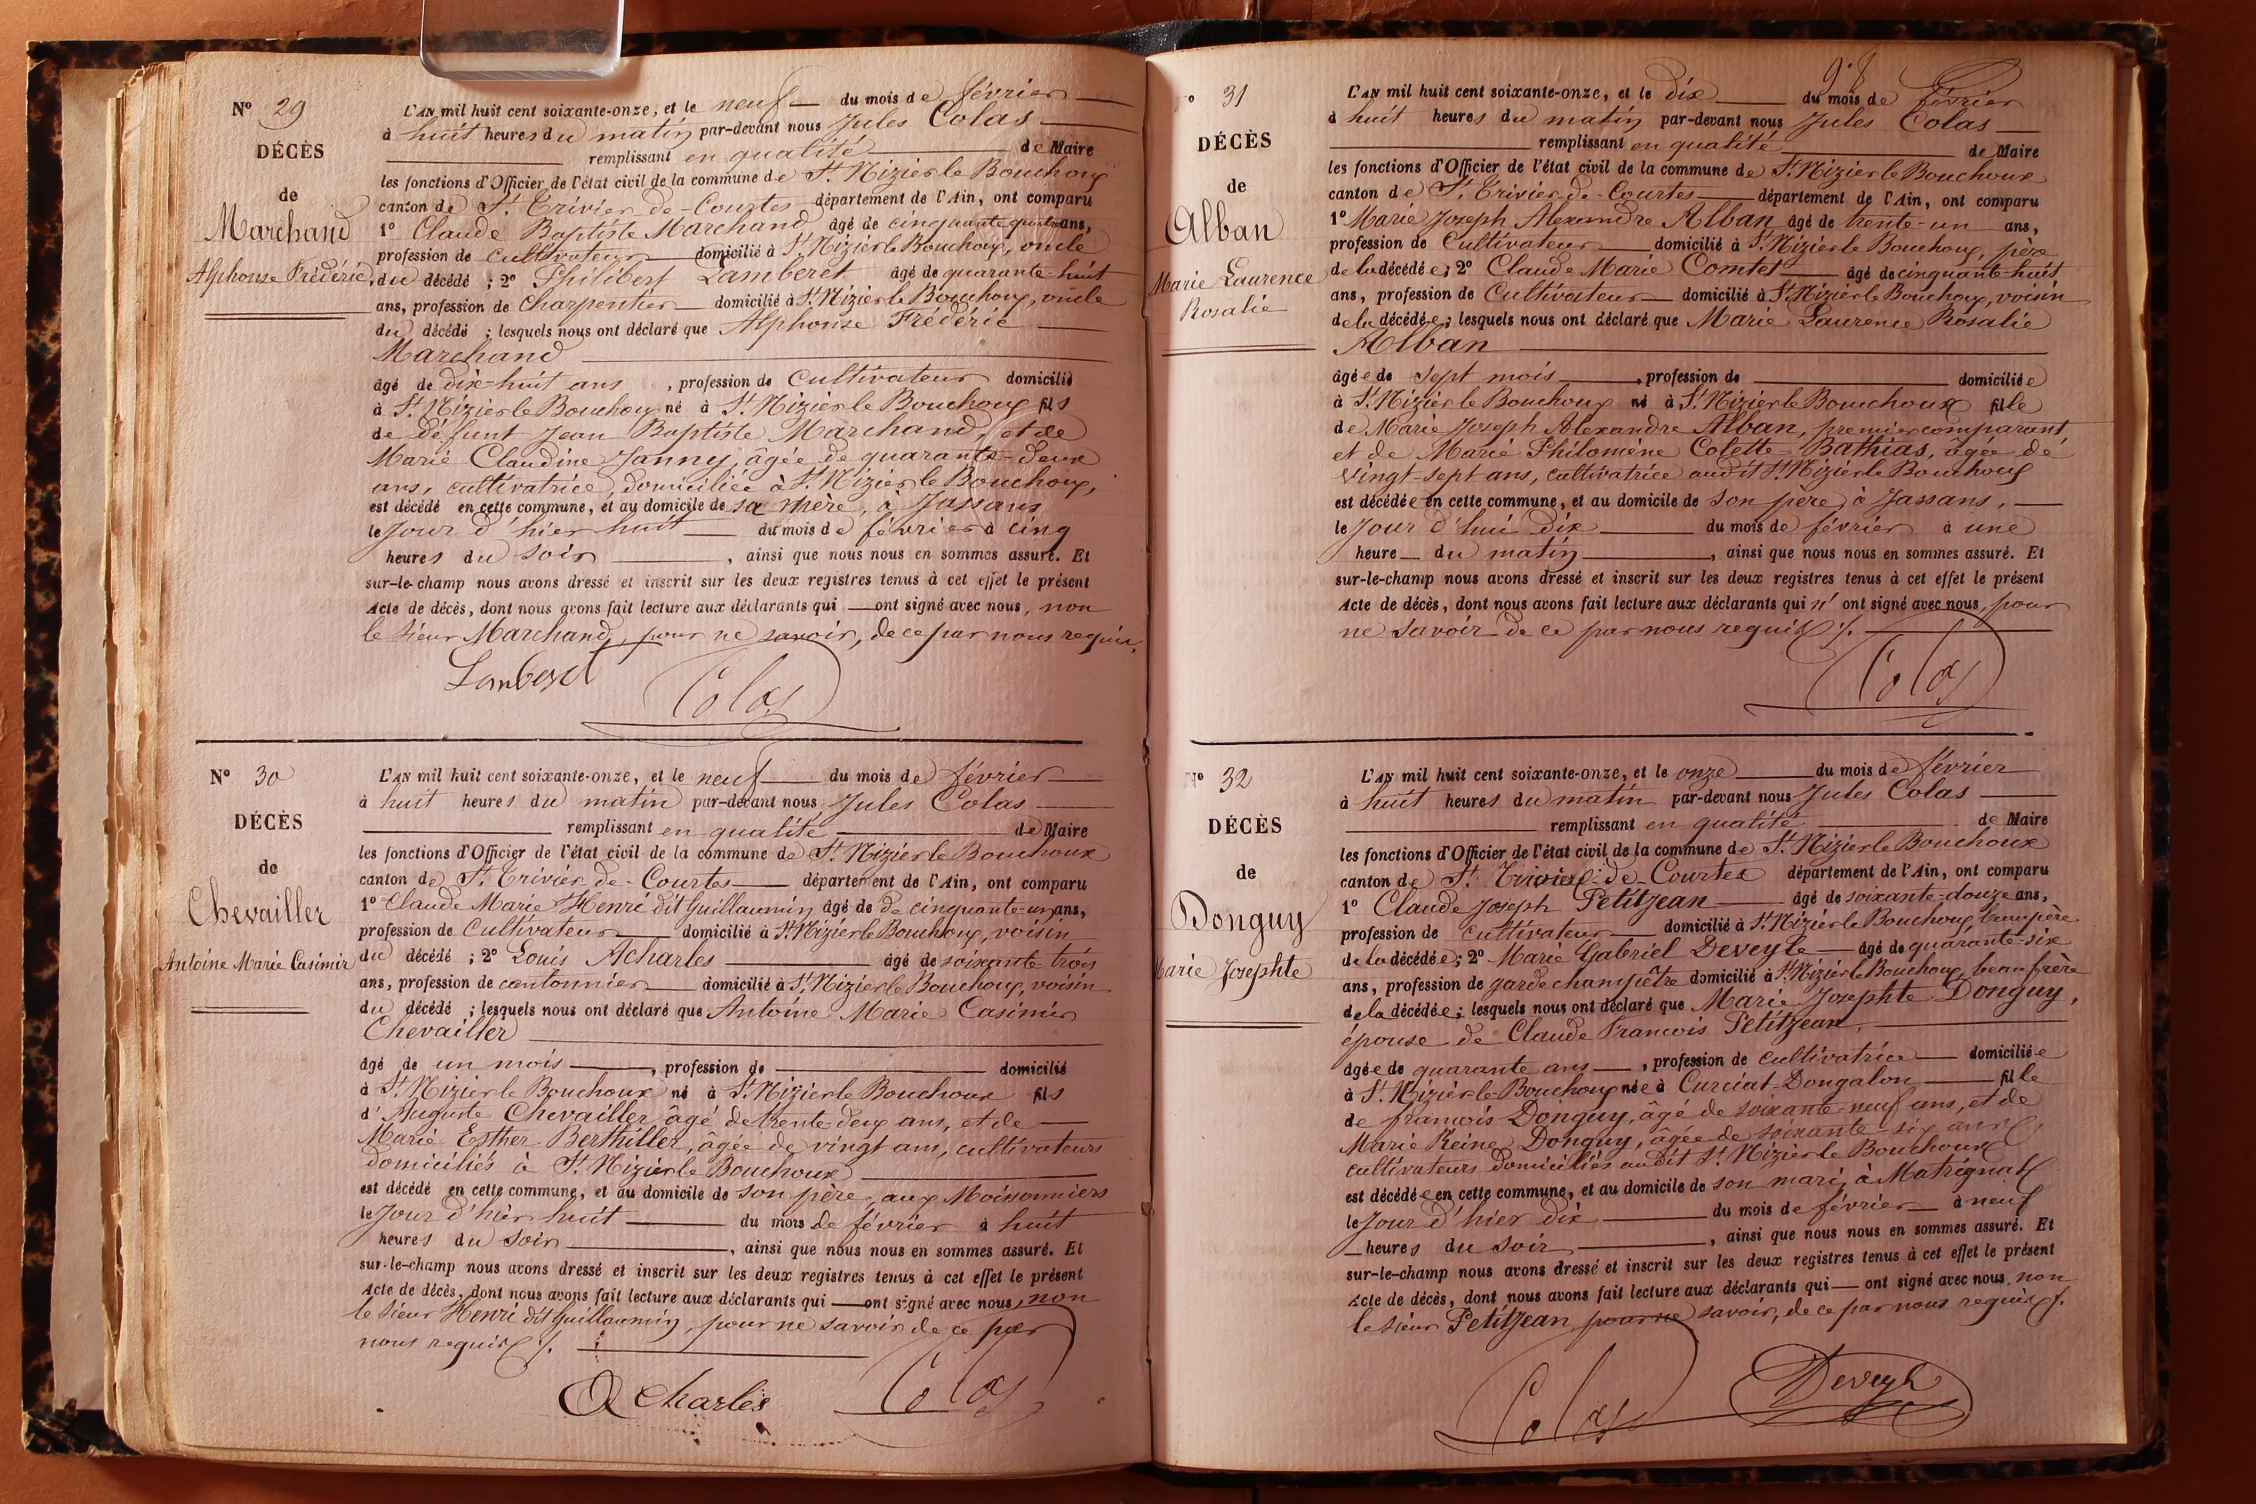 Nº 29
DÉCÈS
de
Marchand
Alphonse Frédéric,
L'AN mil huit cent soixante-onze, et le neuf du mois de février
à huit heures du matin par-devant nous Jules Colas
remplissant en qualité de Maire
les fonctions d'Officier de l'état civil de la commune de St Nizier le Bouchoux
canton de St Trivier-de-Courtes département de l'Ain, ont comparu
1º Claude Baptiste Marchand âgé de cinquante quatre ans,
profession de cultivateur domicilié à St Nizier le Bouchoux, oncle
du décédé ; 2º Philibert Lamberet âgé de quarante-huit
ans, profession de charpentier domicilié à St Nizier le Bouchoux, oncle
du décédé ; lesquels nous ont déclaré que Alphonse Frédéric
Marchand
âgé de dix-huit ans , profession de cultivateur domicilié
à St Nizier le Bouchoux né à St Nizier le Bouchoux fils
de défunt Jean Baptiste Marchand, et de
Marie Claudine Janney, âgée de quarante-deux
ans, cultivatrice, domiciliée à St Nizier le Bouchoux,
est décédé en cette commune, et au domicile de sa mère, à Jassans
le Jour d'hier huit du mois de février à cinq
heures du soir , ainsi que nous nous en sommes assuré. Et
sur-le-champ nous avons dressé et inscrit sur les deux registres tenus à cet effet le présent
Acte de décès, dont nous avons fait lecture aux déclarants qui ont signé avec nous, non
le sieur Marchand, pour ne savoir, de ce par nous requis.
Lamberet
Colas
Nº 30
DÉCÈS
de
Chevailler
Antoine Marie Casimir
L'AN mil huit cent soixante-onze, et le neuf du mois de février
à huit heures du matin par-devant nous Jules Colas
remplissant en qualité de Maire
les fonctions d'Officier de l'état civil de la commune de St Nizier le Bouchoux
canton de St Trivier-de-Courtes département de l'Ain, ont comparu
1º Claude Marie Henri dit Guillaumin âgé de de cinquante-un ans,
profession de Cultivateur domicilié à St Nizier le Bouchoux, voisin
du décédé ; 2º Louis Acharles âgé de soixante-trois
ans, profession de cantonnier domicilié à St Nizier le Bouchoux, voisin
du décédé ; lesquels nous ont déclaré que Antoine Marie Casimir
Chevailler
âgé de un mois , profession de domicilié
à St Nizier le Bouchoux né à St Nizier le Bouchoux fils
d'Auguste Chevailler âgé de trente deux ans, et de
Marie Esther Berthiller, âgée de vingt ans, cultivateurs
domiciliés à St Nizier le Bouchoux
est décédé en cette commune, et au domicile de son père, aux Moissonniers
le Jour d'hier huit du mois de février à huit
heures du soir , ainsi que nous nous en sommes assuré. Et
sur-le-champ nous avons dressé et inscrit sur les deux registres tenus à cet effet le présent
Acte de décès, dont nous avons fait lecture aux déclarants qui ont signé avec nous, non
le sieur Henri dit Guillaumin, pour ne savoir de ce par
nous requis ./.
A charles
Colas
º 31
DÉCÈS
de
Alban
Marie Laurence
Rosalie
L'AN mil huit cent soixante-onze, et le dix du mois de février
à huit heures du matin par-devant nous Jules Colas
remplissant en qualité de Maire
les fonctions d'Officier de l'état civil de la commune de St Nizier le Bouchoux
canton de St Trivier-de-Courtes département de l'Ain, ont comparu
1º Marie Joseph Alexandre Alban âgé de trente-un ans,
profession de Cultivateur domicilié à St Nizier le Bouchoux, père
de la décédée ; 2º Claude Marie Comtet âgé de cinquante-huit
ans, profession de Cultivateur domicilié à St Nizier le Bouchoux, voisin
de la décédée ; lesquels nous ont déclaré que Marie Laurence Rosalie
Alban
âgée de sept mois , profession de domiciliée
à St Nizier le Bouchoux né à St Nizier le Bouchoux fille
de Marie Joseph Alexandre Alban, premier comparant,
et de Marie Philomène Colette Bathias, âgée de
vingt-sept ans, cultivatrice audit St Nizier le Bouchoux
est décédée en cette commune, et au domicile de son père, à Jassans,
le Jour d'hui dix du mois de février à une
heure du matin , ainsi que nous nous en sommes assuré. Et
sur-le-champ nous avons dressé et inscrit sur les deux registres tenus à cet effet le présent
Acte de décès, dont nous avons fait lecture aux déclarants qui n'ont signé avec nous, pour
ne savoir de ce par nous requis ./.
Colas
Nº 32
DÉCÈS
de
Donguy
Marie Josephte
L'AN mil huit cent soixante-onze, et le onze du mois de février
à huit heures du matin par-devant nous Jules Colas
remplissant en qualité de Maire
les fonctions d'Officier de l'état civil de la commune de St Nizier le Bouchoux
canton de St Trivier-de-Courtes département de l'Ain, ont comparu
1º Claude Joseph Petitjean âgé de soixante-douze ans,
profession de cultivateur domicilié à St Nizier le Bouchoux, beaupère
de la décédée ; 2º Marie Gabriel Deveyle âgé de quarante-six
ans, profession de garde champêtre domicilié à St Nizier le Bouchoux, beaufrère
de la décédée ; lesquels nous ont déclaré que Marie Josephte Donguy,
épouse de Claude François Petitjean,
âgée de quarante ans , profession de cultivatrice domiciliée
à St Nizier-le-Bouchoux née à Curciat-Dongalon fille
de françois Donguy, âgé de soixante-neuf ans, et de
Marie Reine Donguy, âgée de soixante-six ans,
cultivateurs domiciliés audit St Nizier le Bouchoux
est décédée en cette commune, et au domicile de son mari, à Matrignat
le Jour d'hier dix du mois de février à neuf
heures du soir , ainsi que nous nous en sommes assuré. Et
sur-le-champ nous avons dressé et inscrit sur les deux registres tenus à cet effet le présent
Acte de décès, dont nous avons fait lecture aux déclarants qui ont signé avec nous, non
le sieur Petitjean pour ne savoir, de ce par nous requis ./.
Colas
Deveyle